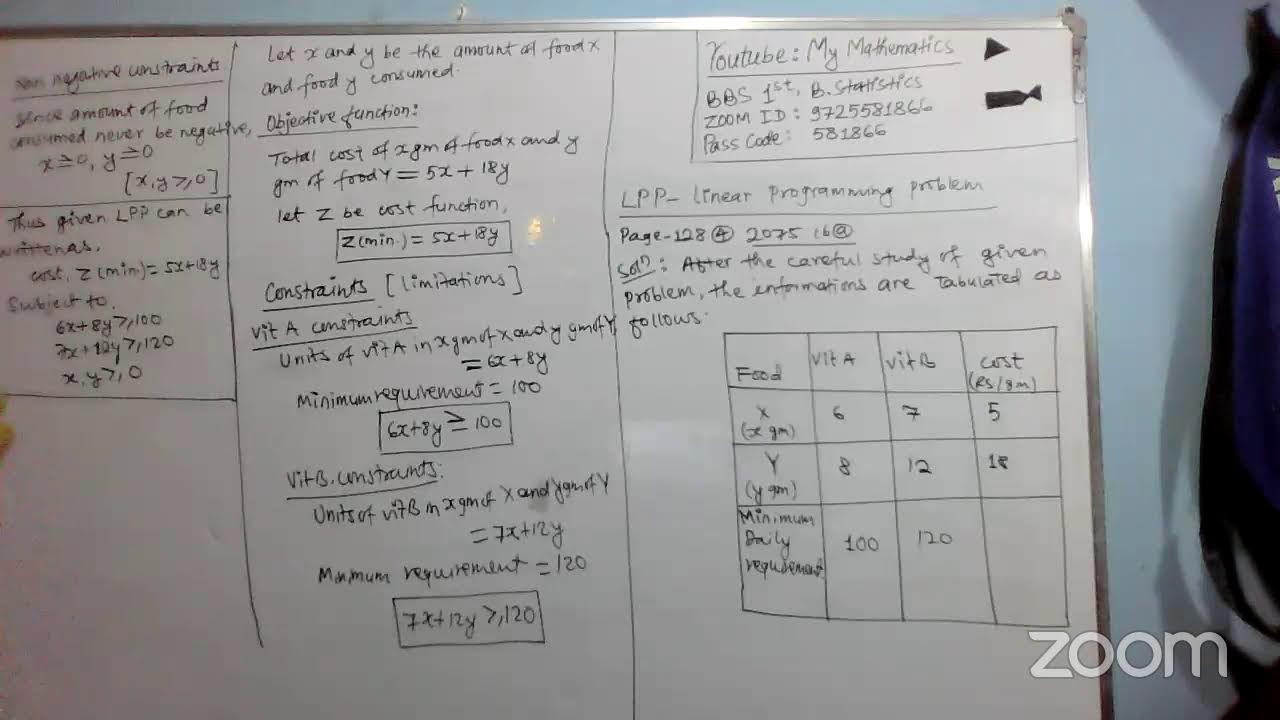 Youtube: My Mathematics
BBS 1st, B. Statistics
ZOOM ID: 9725581866
Pass Code: 581866
LPP- linear programming problem
Page-128 ④ 2075 16@
Solⁿ: After the careful study of given
problem, the informations are tabulated as
follows.
Food Vit A Vit B Cost
(RS/gm)
X 6 7 5
(x gm)
Y 8 12 18
(y gm)
Minimum
Daily 100 120
requirement
Let x and y be the amount of food X
and food y consumed.
Objective function:
Total cost of x gm of food x and y
gm of food Y = 5x + 18y
let Z be cost function,
Z(min.) = 5x+18y
Constraints [limitations]
Vit A constraints
Units of vit A in x gm of X and y gm of Y
= 6x+8y
Minimum requirement = 100
6x+8y ≥ 100
Vit B. constraints:
Units of vit B in x gm of X and y gm of Y
= 7x+12y
Minimum requirement = 120
7x+12y ≥ 120
Non negative constraints
since amount of food
consumed never be negative,
x ≥ 0, y ≥ 0
[x, y ≥ 0]
Thus given LPP can be
written as.
cost, Z (min) = 5x+18y
Subject to.
6x+8y ≥ 100
7x+12y ≥ 120
x, y ≥ 0
zoom